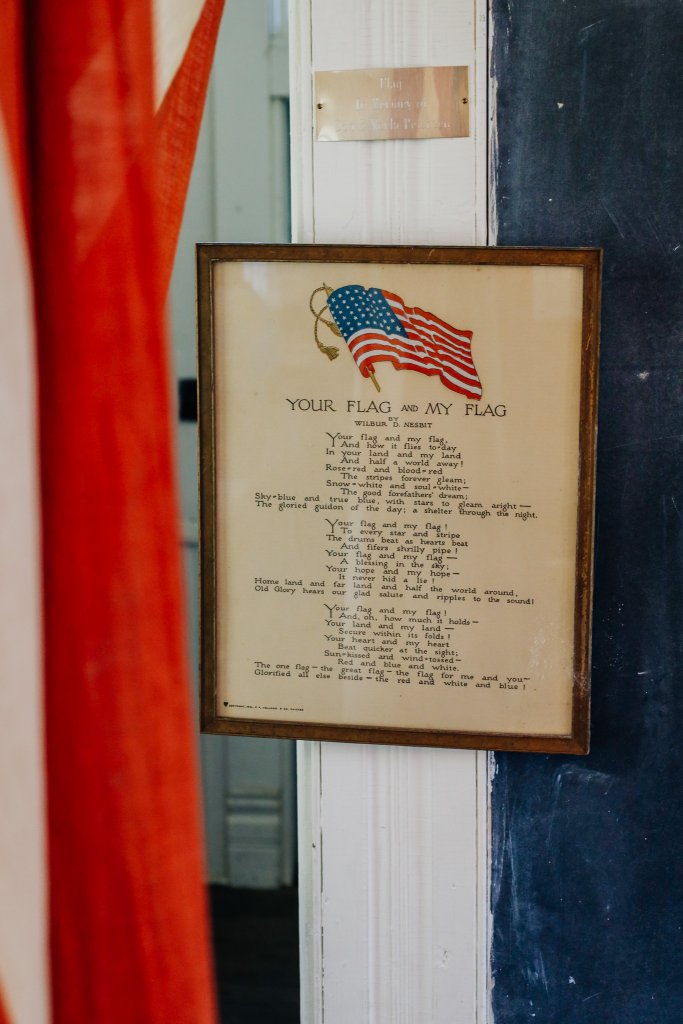 Flag
In Memory of
YOUR FLAG AND MY FLAG
BY
WILBUR D. NESBIT
Your flag and my flag,
And how it flies to-day
In your land and my land
And half a world away!
Rose-red and blood-red
The stripes forever gleam;
Snow-white and soul-white—
The good forefathers' dream;
Sky-blue and true blue, with stars to gleam aright—
The gloried guidon of the day; a shelter through the night.
Your flag and my flag!
To every star and stripe
The drums beat as hearts beat
And fifers shrilly pipe!
Your flag and my flag—
A blessing in the sky;
Your hope and my hope—
It never hid a lie!
Home land and far land and half the world around,
Old Glory hears our glad salute and ripples to the sound!
Your flag and my flag!
And, oh, how much it holds—
Your land and my land—
Secure within its folds!
Your heart and my heart
Beat quicker at the sight;
Sun-kissed and wind-tossed—
Red and blue and white.
The one flag—the great flag—the flag for me and you—
Glorified all else beside—the red and white and blue!